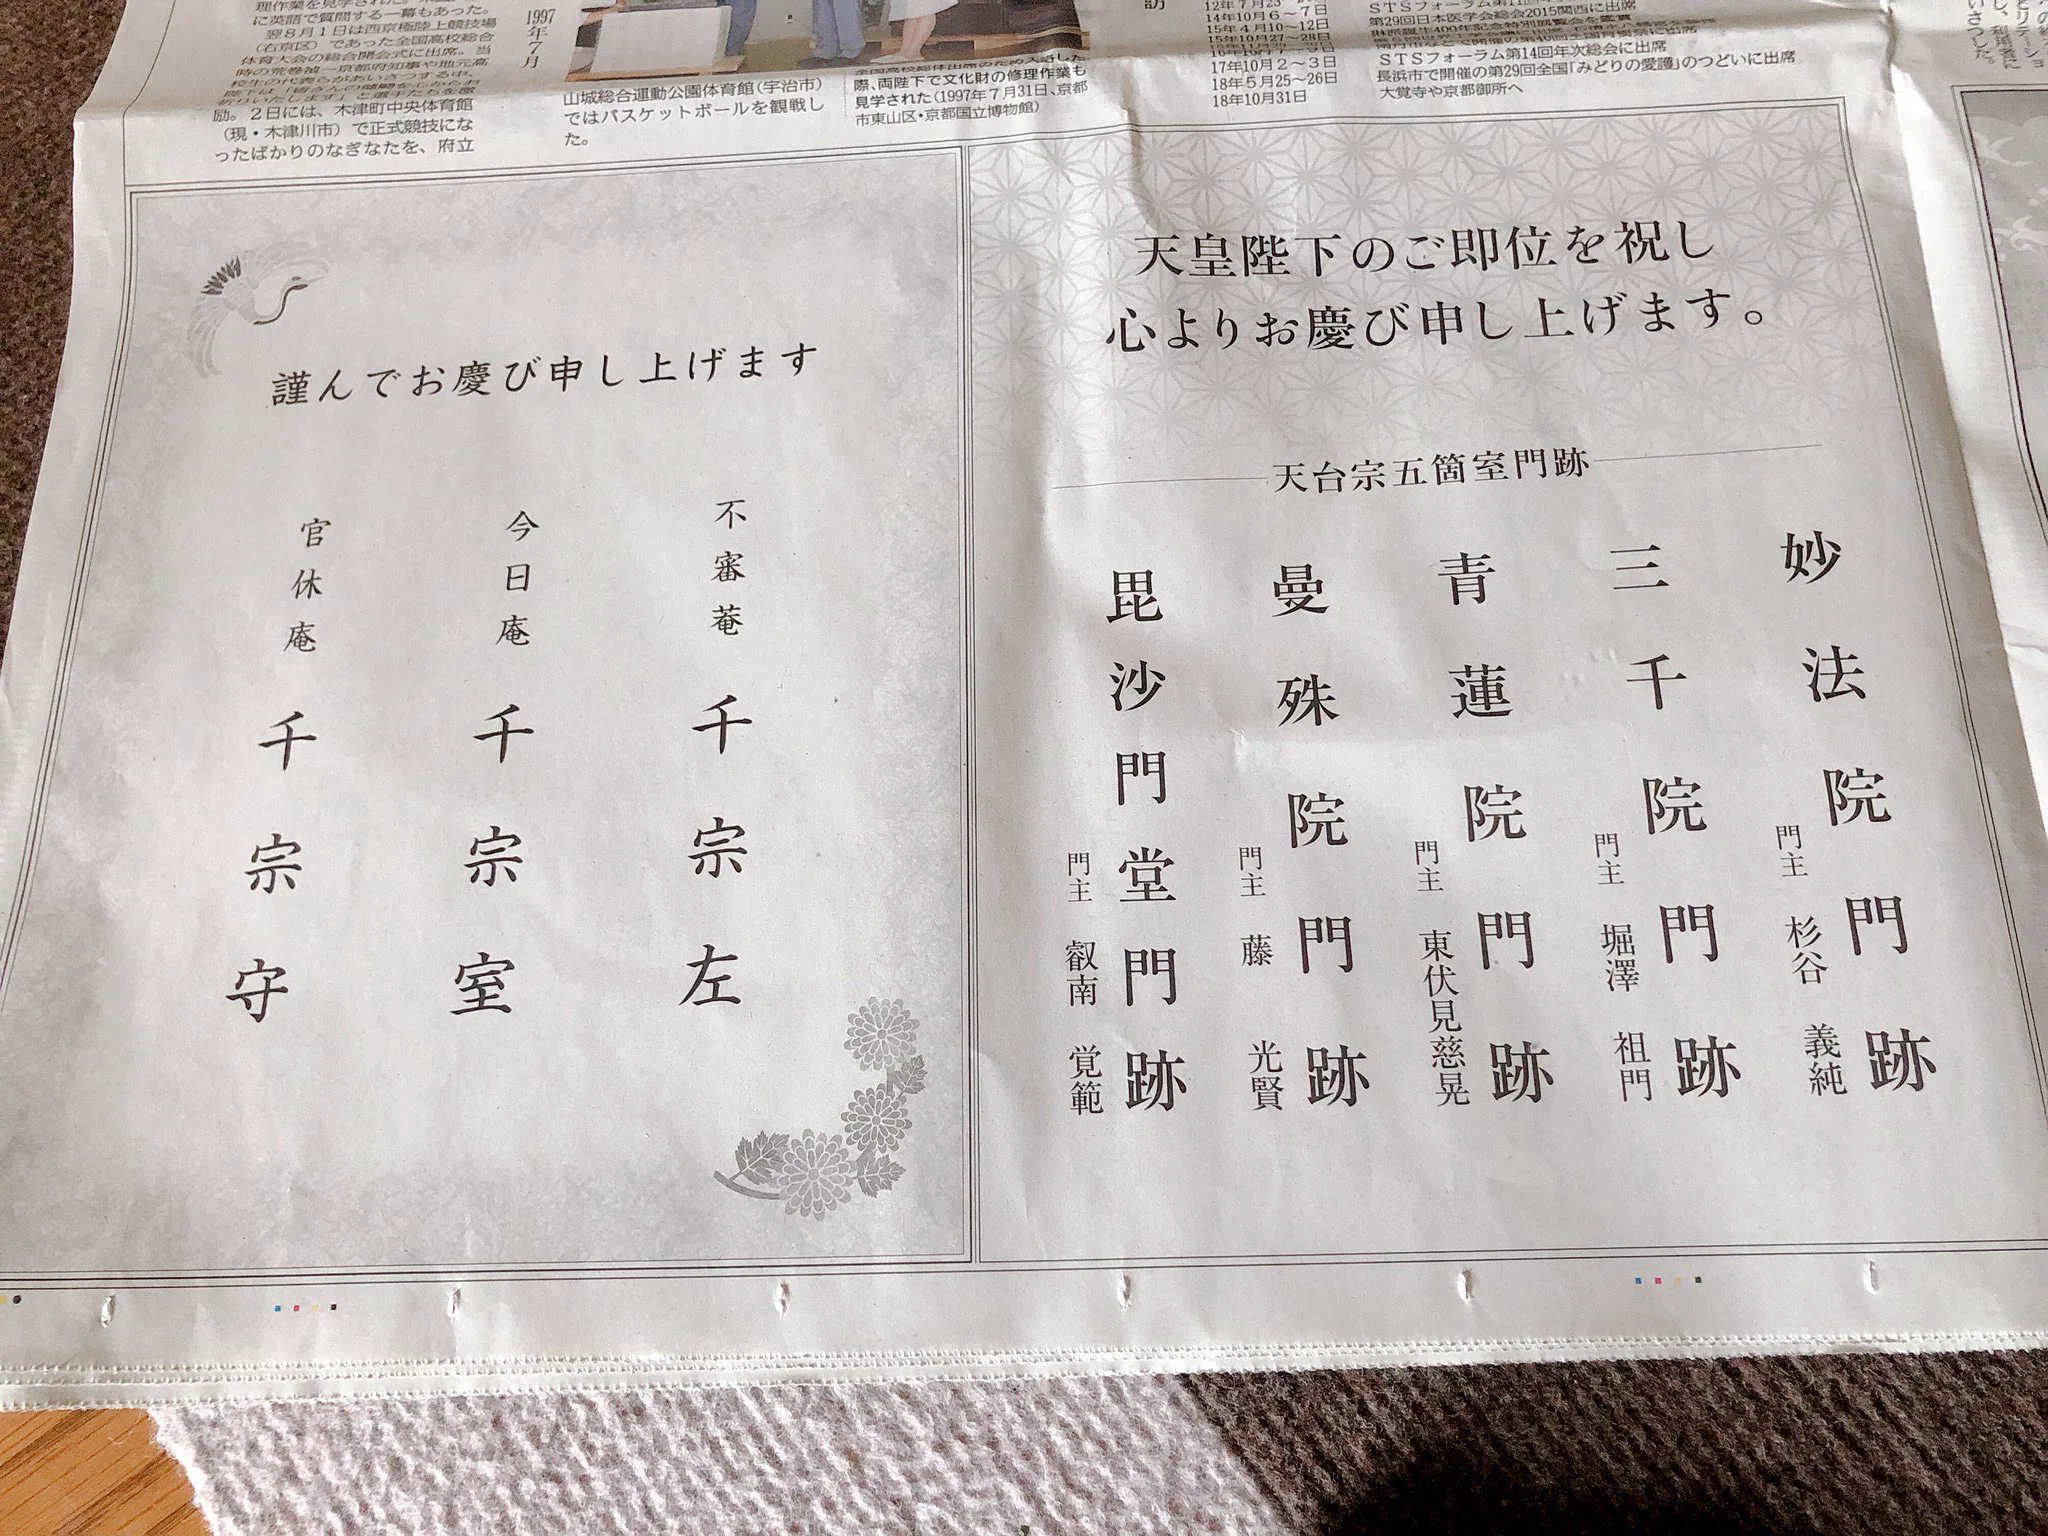 理作業を見学された。
に英語で質問する一幕もあった。
翌8月1日は西京極陸上競技場
（右京区）であった全国高校総合
体育大会の総合開会式に出席。当
時の荒巻禎一京都府知事や地元高
校生の代表らがあいさつする中、
励。2日には、木津町中央体育館
（現・木津川市）で正式競技にな
ったばかりのなぎなたを、府立
1997年7月
山城総合運動公園体育館（宇治市）
ではバスケットボールを観戦し
た。
際、両陛下で文化財の修理作業も
見学された（1997年7月31日、京都
市東山区・京都国立博物館）
訪
14年10月6〜7日
15年4月10〜12日
17年10月2〜3日
18年5月25〜26日
18年10月31日
第29回日本医学会総会2015関西に出席
STSフォーラム第14回年次総会に出席
長浜市で開催の第29回全国「みどりの愛護」のつどいに出席
大覚寺や京都御所へ
天皇陛下のご即位を祝し
心よりお慶び申し上げます。
天台宗五箇室門跡
妙法院門跡
門主 杉谷 義純
三千院門跡
門主 堀澤 祖門
青蓮院門跡
門主 東伏見慈晃
曼殊院門跡
門主 藤 光賢
毘沙門堂門跡
門主 叡南 覚範
謹んでお慶び申し上げます
不審菴 千宗左
今日庵 千宗室
官休庵 千宗守